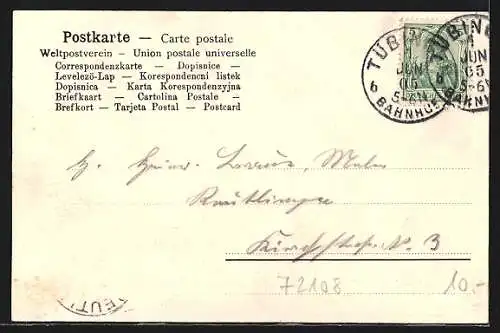 Postkarte — Carte postale
Weltpostverein – Union postale universelle
Correspondenzkarte — Dopisnice —
Levelező-Lap — Korespondencni listek
Dopisnica — Karta Korespondenzyjna
Briefkaart — Cartolina Postale —
Brefkort — Tarjeta Postal — Postcard
TÜBINGEN
JUN
05
5-6
b BAHNHOF
H. Heinr.
Reutlingen
3
72108
10.-
REUT